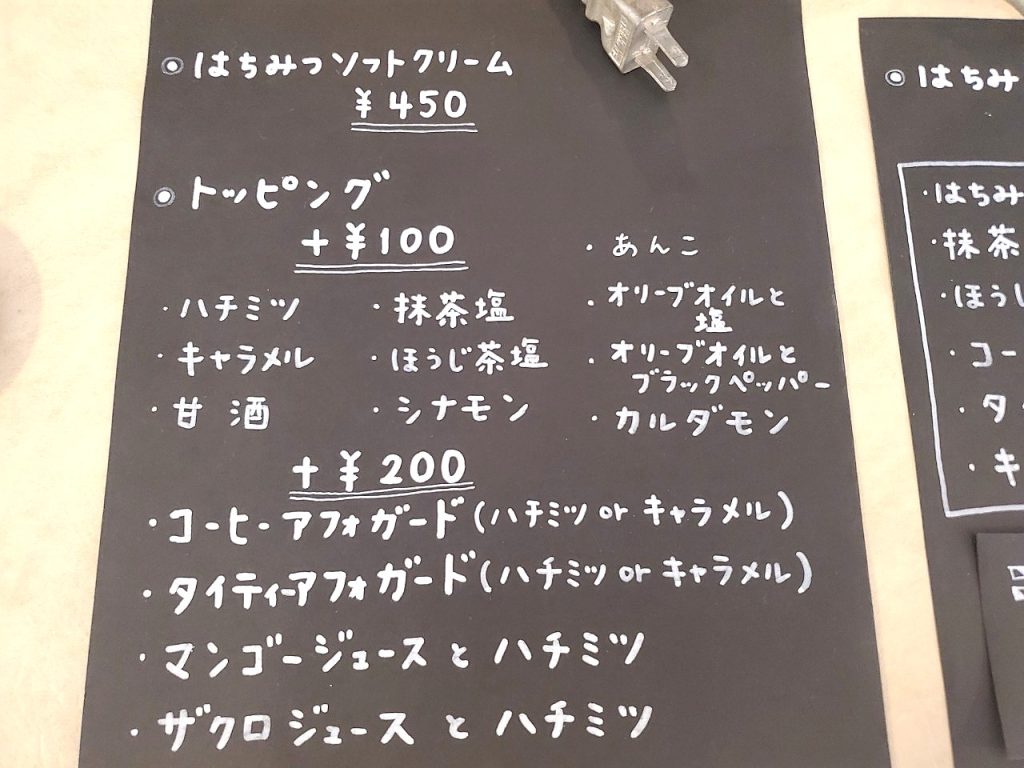 はちみつソフトクリーム
¥450
トッピング
+¥100
・ハチミツ
・キャラメル
・甘酒
・抹茶塩
・ほうじ茶塩
・シナモン
・あんこ
・オリーブオイルと
塩
・オリーブオイルと
ブラックペッパー
・カルダモン
+¥200
・コーヒーアフォガード(ハチミツ or キャラメル)
・タイティーアフォガード(ハチミツ or キャラメル)
・マンゴージュースとハチミツ
・ザクロジュースとハチミツ
はちみ
・はちみ
・抹茶
・ほうじ
・コー
・タイ
・キ